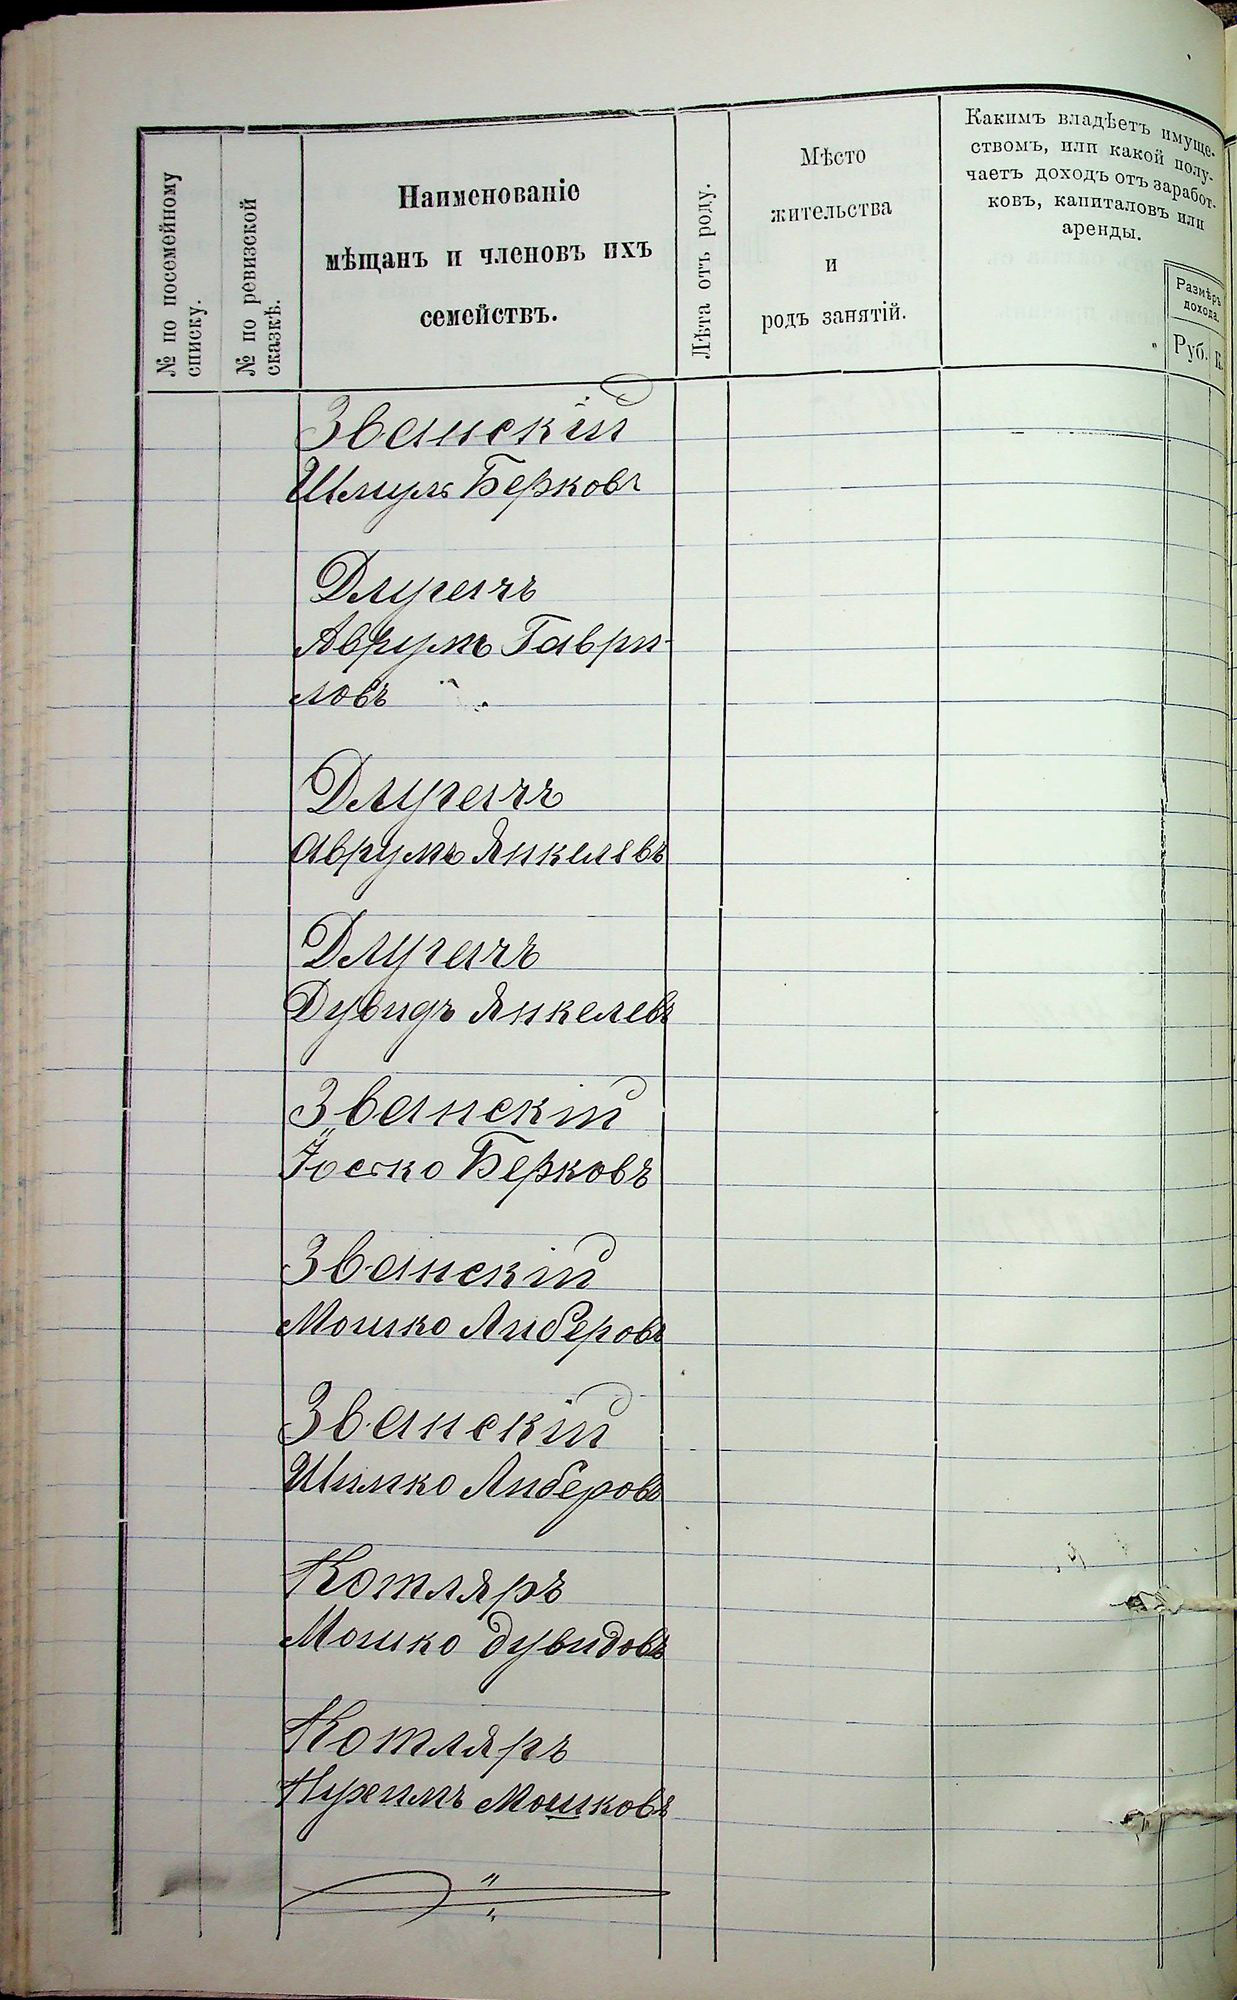 № по посемейному
списку.
№ по ревизской
сказкѣ.
Наименованіе
мѣщанъ и членовъ ихъ
семействъ.
Лѣта отъ роду.
Мѣсто
жительства
и
родъ занятій.
Какимъ владѣетъ имуще-
ствомъ, или какой полу-
чаетъ доходъ отъ заработ-
ковъ, капиталовъ или
аренды.
Размѣръ
дохода.
Руб. К.
Званскій
Шмуль Берковъ
Длугачъ
Аврумъ Гаври-
ловъ
Длугачъ
Аврумъ Янкелевъ
Длугачъ
Дувидъ Янкелевъ
Званскій
Іосько Берковъ
Званскій
Мошко Либеровъ
Званскій
Шимко Либеровъ
Котляръ
Мошко Дувидовъ
Котляръ
Нухимъ Мошковъ